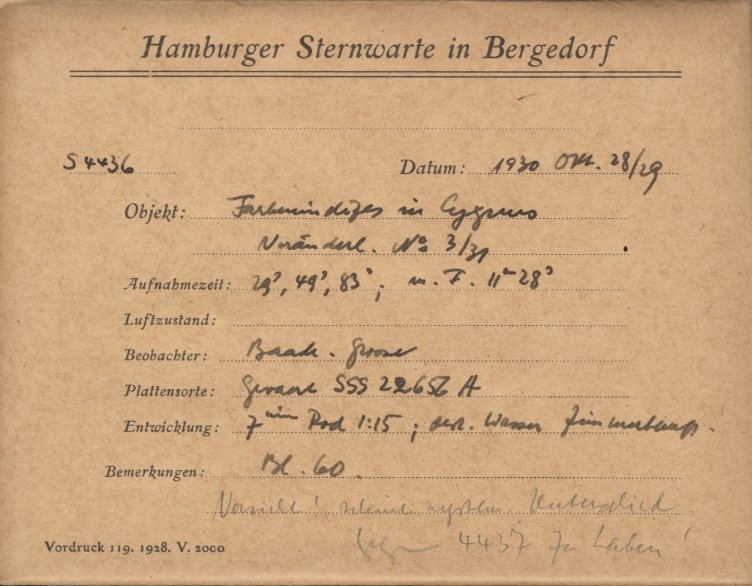 Hamburger Sternwarte in Bergedorf
S 4436
Datum: 1930 Okt. 28/29
Objekt: Farbenindizes in Cygnus
Veränderl. No 3/31
Aufnahmezeit: 29s, 49s, 83s; m. F. 11m 28s
Luftzustand:
Beobachter: Baade.
Plattensorte: Gevaert SSS 22656 A
Entwicklung: 7min Rod 1:15; dest. Wasser
Bemerkungen: Bl. 60.
Vorsicht! scheint system. Unterschied
gegen 4437 zu haben!
Vordruck 119. 1928. V. 2000